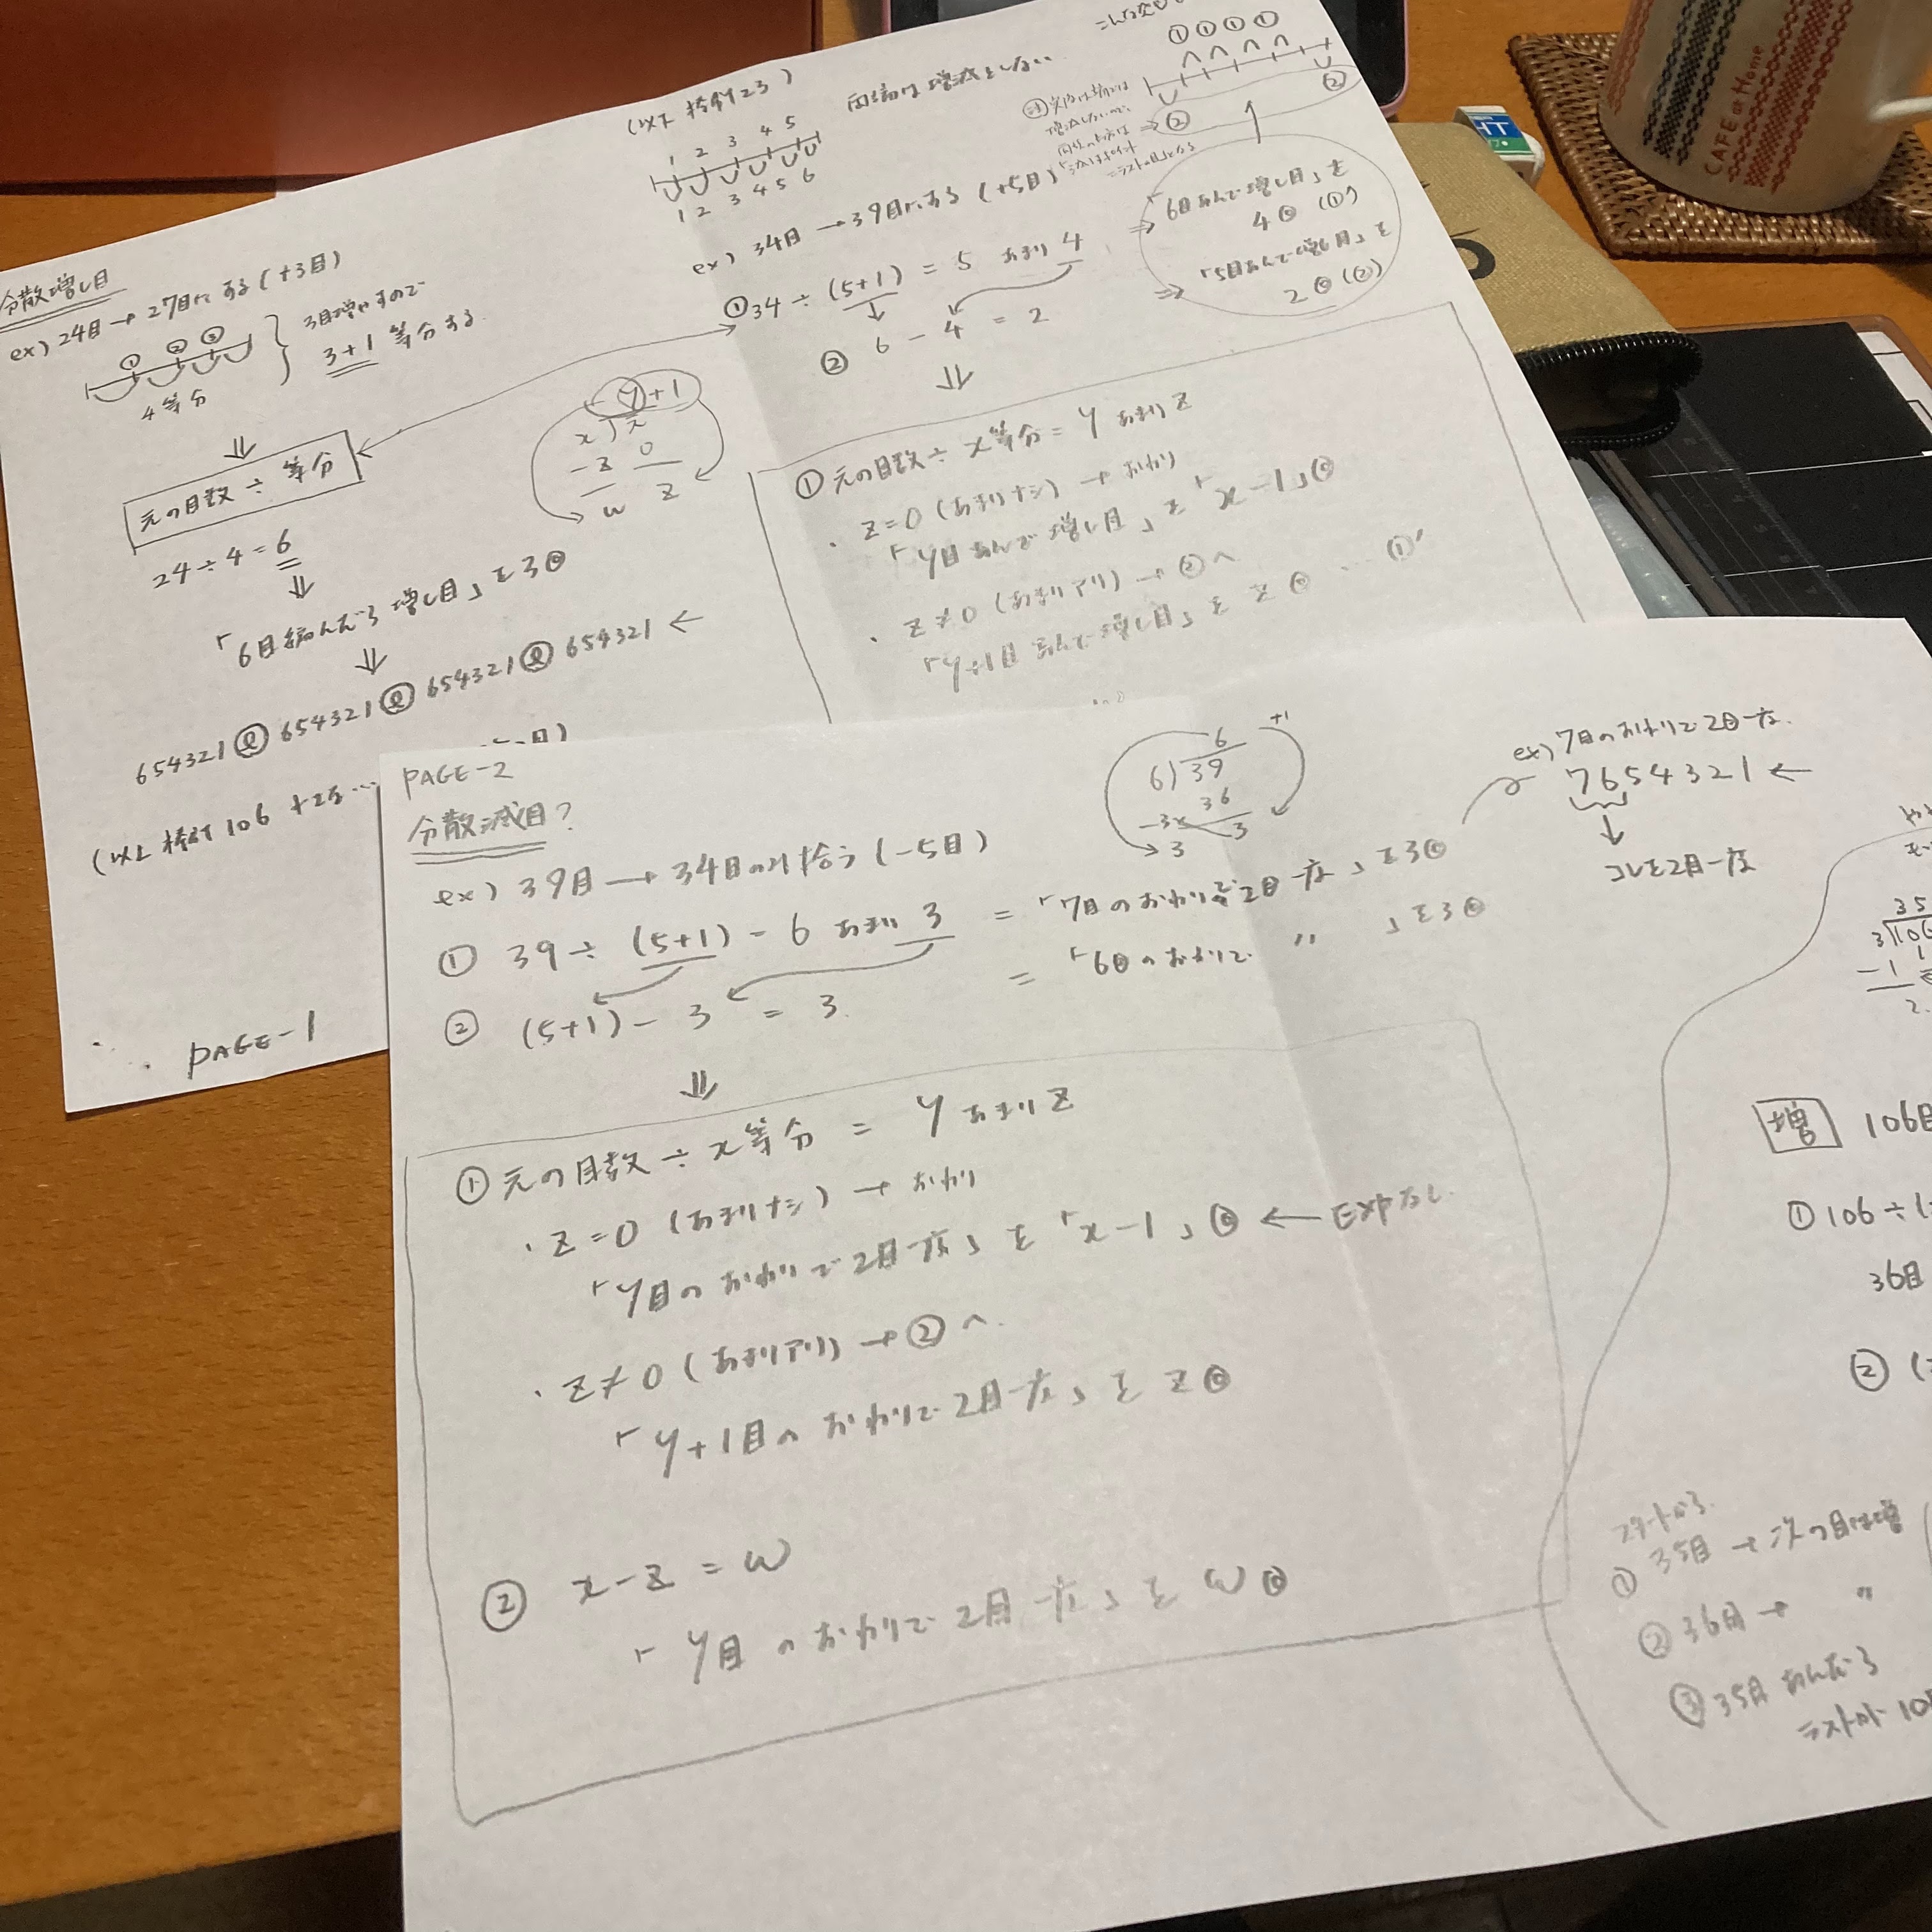 分散増し目
ex) 24目→27目にする (+3目)
① ② ③
4等分
3目増やすので
3+1 等分する
元の目数 ÷ 等分
24÷4=6
「6目編んだら増し目」を3回
654321 ⓠ 654321 ⓠ 654321 ⓠ 654321 ←
(以上 棒針
106
PAGE-1
y+1
x
-z 0
w z
(以下 棒針23)
両端は増減をしない
1 2 3 4 5
1 2 3 4 5 6
ex) 34目→39目にする (+5目)
①34÷(5+1)=5 あまり 4
② 6-4=2
⇒「6目あんで増し目」を
4回 (①)
⇒「5目あんで増し目」を
2回 (②)
① ① ① ①
② ②
①元の目数÷x等分=yあまりz
・z=0 (あまりナシ)→おわり
「y目あんで増し目」を「x-1」回
・z≠0 (あまりアリ)→②へ
「y+1目あんで増し目」をz回 … ①'
PAGE-2
分散減目?
ex) 39目→34目のみ拾う (-5目)
① 39÷(5+1)-6 あまり 3 =「7目のおわりで2目一度」を3回
② (5+1)-3=3. =「6目のおわりで 〃 」を3回
6 +1
6)39
36
-3 3
3
ex) 7目のおわりで2目一度.
7654321 ←
コレを2目一度
①元の目数÷x等分=yあまりz
・z=0 (あまりナシ)→おわり
「y目のおわりで2目一度」を「x-1」回 ← EXPなし
・z≠0 (あまりアリ)→②へ.
「y+1目のおわりで2目一度」をz回
② x-z=w
「y目のおわりで2目一度」をw回
35
3)106
-1
2.
増 106目
①106÷(
36目
② (
スタートから.
① 35目→次の目は増
② 36目→ 〃
③ 35目あんだら
ラストが
CAFE at Home